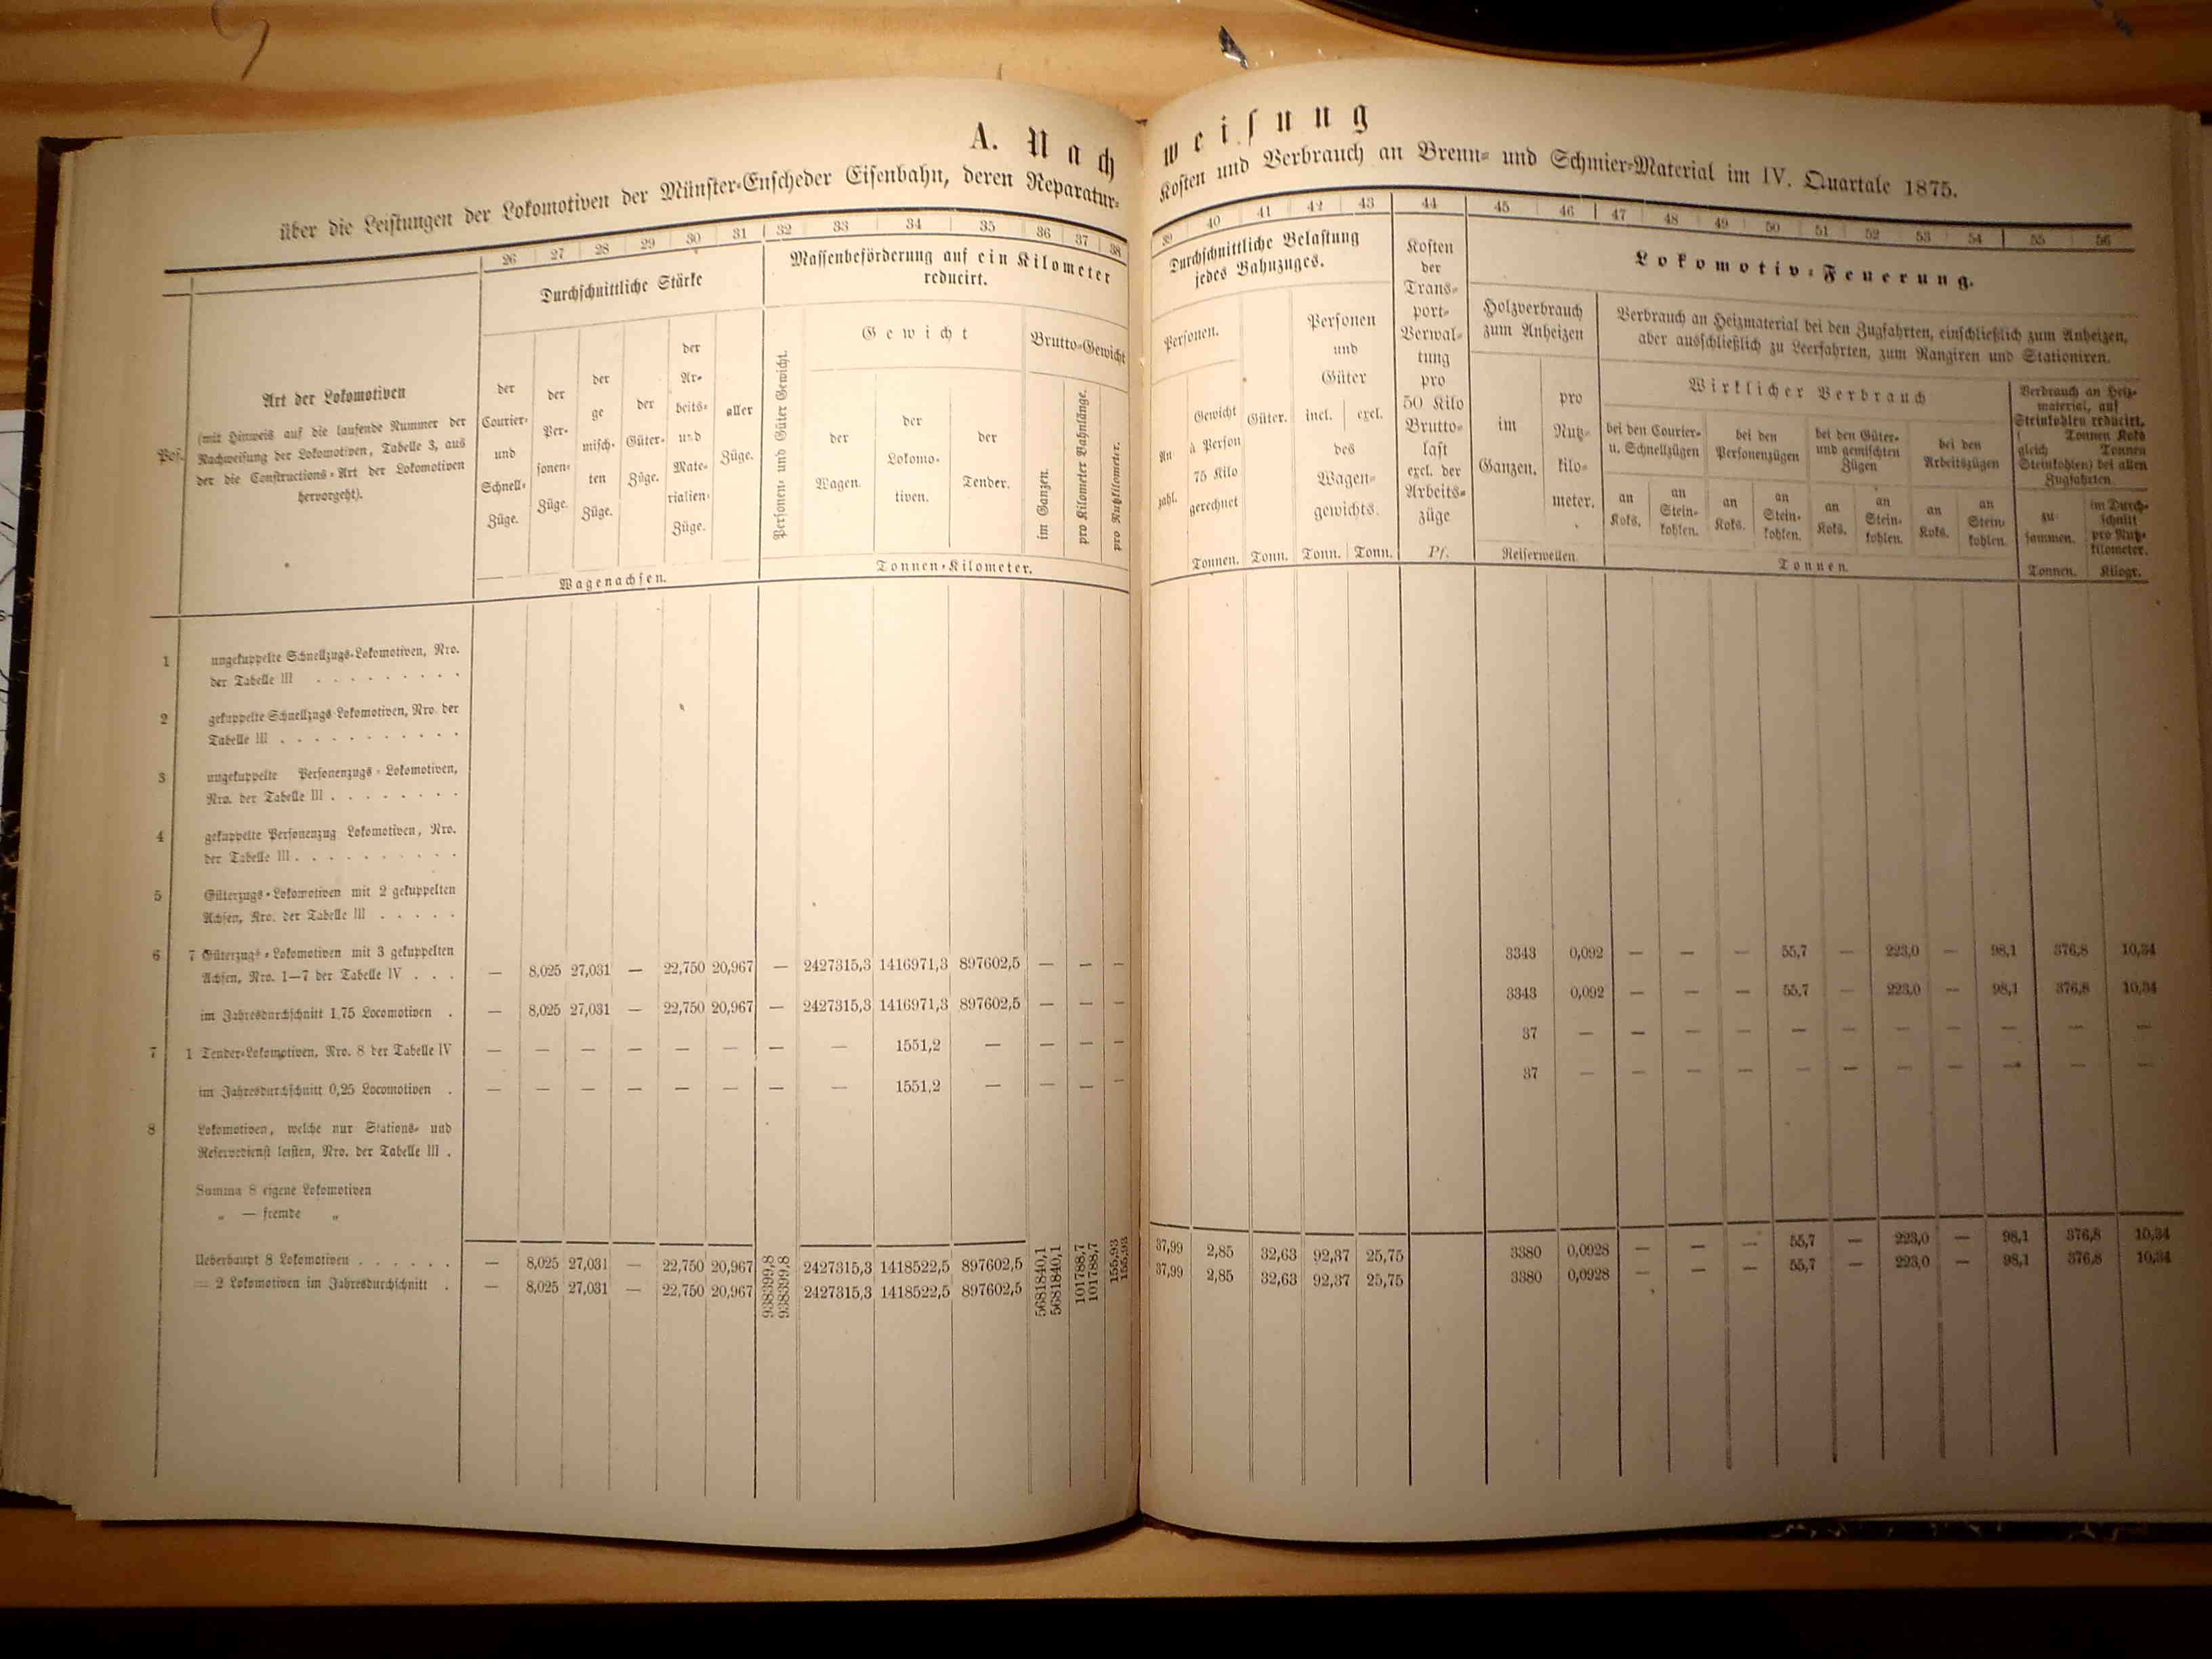 A. Nach weisung
über die Leistungen der Lokomotiven der Münster-Enscheder Eisenbahn, deren Reparatur- Kosten und Verbrauch an Brenn- und Schmier-Material im IV. Quartale 1875.
26 27 28 29 30 31 32 33 34 35 36 37 38
Pos.
Art der Lokomotiven
(mit Hinweis auf die laufende Nummer der
Nachweisung der Lokomotiven, Tabelle 3, aus
der die Constructions-Art der Lokomotiven
hervorgeht).
Durchschnittliche Stärke
der
Courier-
und
Schnell-
Züge.
der
Per-
sonen-
Züge.
der
ge
misch-
ten
Züge.
der
Güter-
Züge.
der
Ar-
beits-
und
Mate-
rialien-
Züge.
aller
Züge.
Wagenachsen.
Massenbeförderung auf ein Kilometer
reducirt.
Personen- und Güter Gewicht.
Gewicht
der
Wagen.
der
Lokomo-
tiven.
der
Tender.
Brutto-Gewicht
im Ganzen.
pro Kilometer Bahnlänge.
pro Nutzkilometer.
Tonnen-Kilometer.
1 ungekuppelte Schnellzugs-Lokomotiven, Nro.
der Tabelle III . . . . . . . . .
2 gekuppelte Schnellzugs Lokomotiven, Nro. der
Tabelle III . . . . . . . . . . .
3 ungekuppelte Personenzugs-Lokomotiven,
Nro. der Tabelle III . . . . . . . .
4 gekuppelte Personenzug Lokomotiven, Nro.
der Tabelle III . . . . . . . . . .
5 Güterzugs-Lokomotiven mit 2 gekuppelten
Achsen, Nro. der Tabelle III . . . . .
6 7 Güterzugs-Lokomotiven mit 3 gekuppelten
Achsen, Nro. 1—7 der Tabelle IV . . . — 8,025 27,031 — 22,750 20,967 — 2427315,3 1416971,3 897602,5 — — —
im Jahresdurchschnitt 1,75 Locomotiven . — 8,025 27,031 — 22,750 20,967 — 2427315,3 1416971,3 897602,5 — — —
7 1 Tender-Lokomotiven, Nro. 8 der Tabelle IV — — — — — — — — 1551,2 — — — —
im Jahresdurchschnitt 0,25 Locomotiven . — — — — — — — — 1551,2 — — — —
8 Lokomotiven, welche nur Stations- und
Reservedienst leisten, Nro. der Tabelle III .
Summa 8 eigene Lokomotiven
„ — fremde „
Ueberhaupt 8 Lokomotiven . . . . . . — 8,025 27,031 — 22,750 20,967 938399,8 2427315,3 1418522,5 897602,5 5681840,1 101788,7 155,93
= 2 Lokomotiven im Jahresdurchschnitt . — 8,025 27,031 — 22,750 20,967 938399,8 2427315,3 1418522,5 897602,5 5681840,1 101788,7 155,93
39 40 41 42 43 44 45 46 47 48 49 50 51 52 53 54 55 56
Durchschnittliche Belastung
jedes Bahnzuges.
Personen.
An-
zahl.
Gewicht
à Person
75 Kilo
gerechnet
Tonnen.
Güter.
Tonn.
Personen
und
Güter
incl. excl.
des
Wagen-
gewichts.
Tonn. Tonn.
Kosten
der
Trans-
port-
Verwal-
tung
pro
50 Kilo
Brutto-
last
excl. der
Arbeits-
züge
Pf.
Lokomotiv-Feuerung.
Holzverbrauch
zum Anheizen
im
Ganzen.
pro
Nutz-
kilo-
meter.
Reiserwellen.
Verbrauch an Heizmaterial bei den Zugfahrten, einschließlich zum Anheizen,
aber ausschließlich zu Leerfahrten, zum Rangiren und Stationiren.
Wirklicher Verbrauch
bei den Courier-
u. Schnellzügen
an
Koks.
an
Stein-
kohlen.
bei den
Personenzügen
an
Koks.
an
Stein-
kohlen.
bei den Güter-
und gemischten
Zügen
an
Koks.
an
Stein-
kohlen.
bei den
Arbeitszügen
an
Koks.
an
Stein-
kohlen.
Tonnen.
Verbrauch an Heiz-
material, auf
Steinkohlen reducirt,
( Tonnen Koks
gleich Tonnen
Steinkohlen) bei allen
Zugfahrten
zu-
sammen.
Tonnen.
im Durch-
schnitt
pro Nutz-
kilometer.
Kilogr.
3343 0,092 — — — 55,7 — 223,0 — 98,1 376,8 10,34
3343 0,092 — — — 55,7 — 223,0 — 98,1 376,8 10,34
37 — — — — — — — — — — —
37 — — — — — — — — — — —
37,99 2,85 32,63 92,37 25,75 3380 0,0928 — — — 55,7 — 223,0 — 98,1 376,8 10,34
37,99 2,85 32,63 92,37 25,75 3380 0,0928 — — — 55,7 — 223,0 — 98,1 376,8 10,34